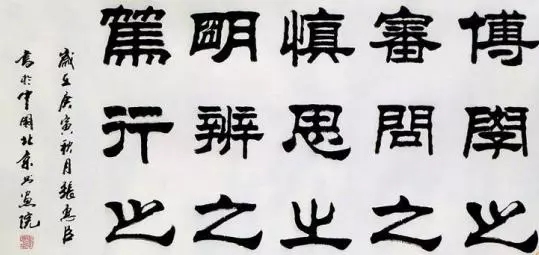 博學之
審問之
慎思之
明辨之
篤行之
歲在庚寅秋月張惠臣
書於中國北京書畫院